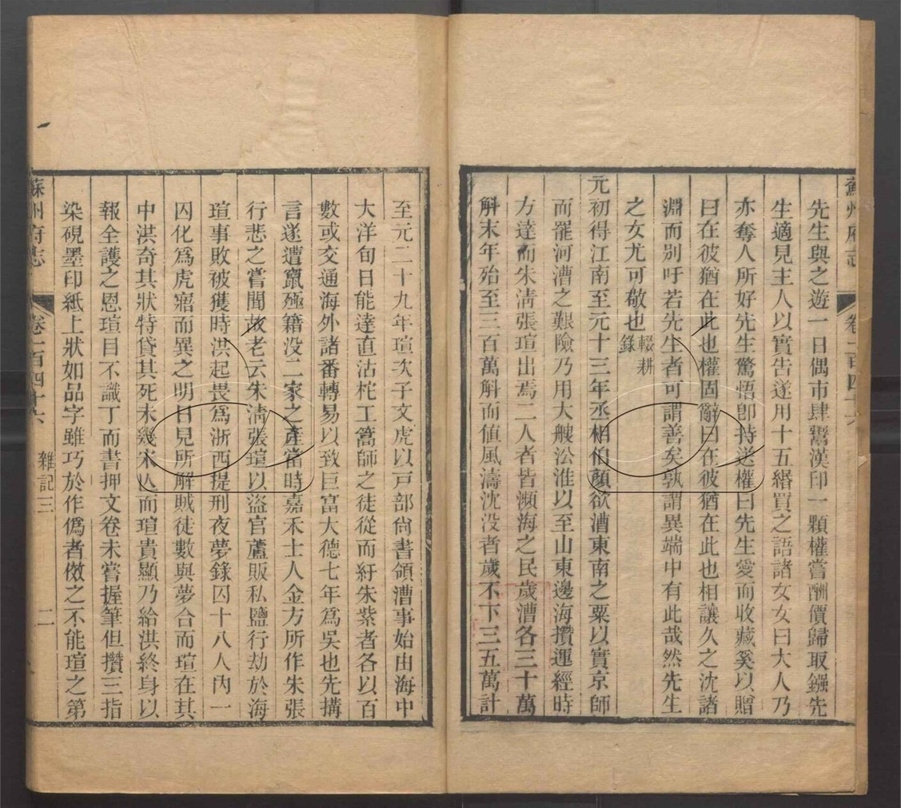 蘇州府志 卷一百四十六
先生與之遊一日偶市肆鬻漢印一顆權嘗酬價歸取鏹先
生適見主人以實告遂用十五緡買之語諸女女曰大人乃
亦奪人所好先生驚悟卽持送權曰先生愛而收藏奚以贈
曰在彼猶在此也權固辭曰在彼猶在此也相讓久之沈諸
淵而別吁若先生者可謂善矣孰謂異端中有此哉然先生
之女尤可敬也輟耕錄
元初得江南至元十三年丞相伯顏欲漕東南之粟以實京師
而罹河漕之艱險乃用大艘沿淮以至山東邊海攢運經時
方達而朱淸張瑄出焉二人者皆瀕海之民歲漕各三十萬
斛末年殆至三百萬斛而値風濤沈沒者歲不下三五萬計
至元二十九年瑄次子文虎以戸部尙書領漕事始由海中
大洋旬日能達直沽柁工篙師之徒從而紆朱紫者各以百
數或交通海外諸番轉易以致巨富大德七年爲吳也先搆
言遂遭竄殛籍没二家之產當時嘉禾士人金方所作朱張
行悲之嘗聞故老云朱淸張瑄以盜官蘆販私鹽行劫於海
瑄事敗被獲時洪起畏爲浙西提刑夜夢錄囚十八人內一
囚化爲虎寤而異之明日見所解賊徒數與夢合而瑄在其
中洪奇其狀特貸其死未幾宋亾而瑄貴顯乃給洪終身以
報全護之恩瑄目不識丁而書押文卷未嘗握筆但攢三指
染硯墨印紙上狀如品字雖巧於作僞者傚之不能瑄之第
蘇州府志 卷一百四十六 雜記三 二